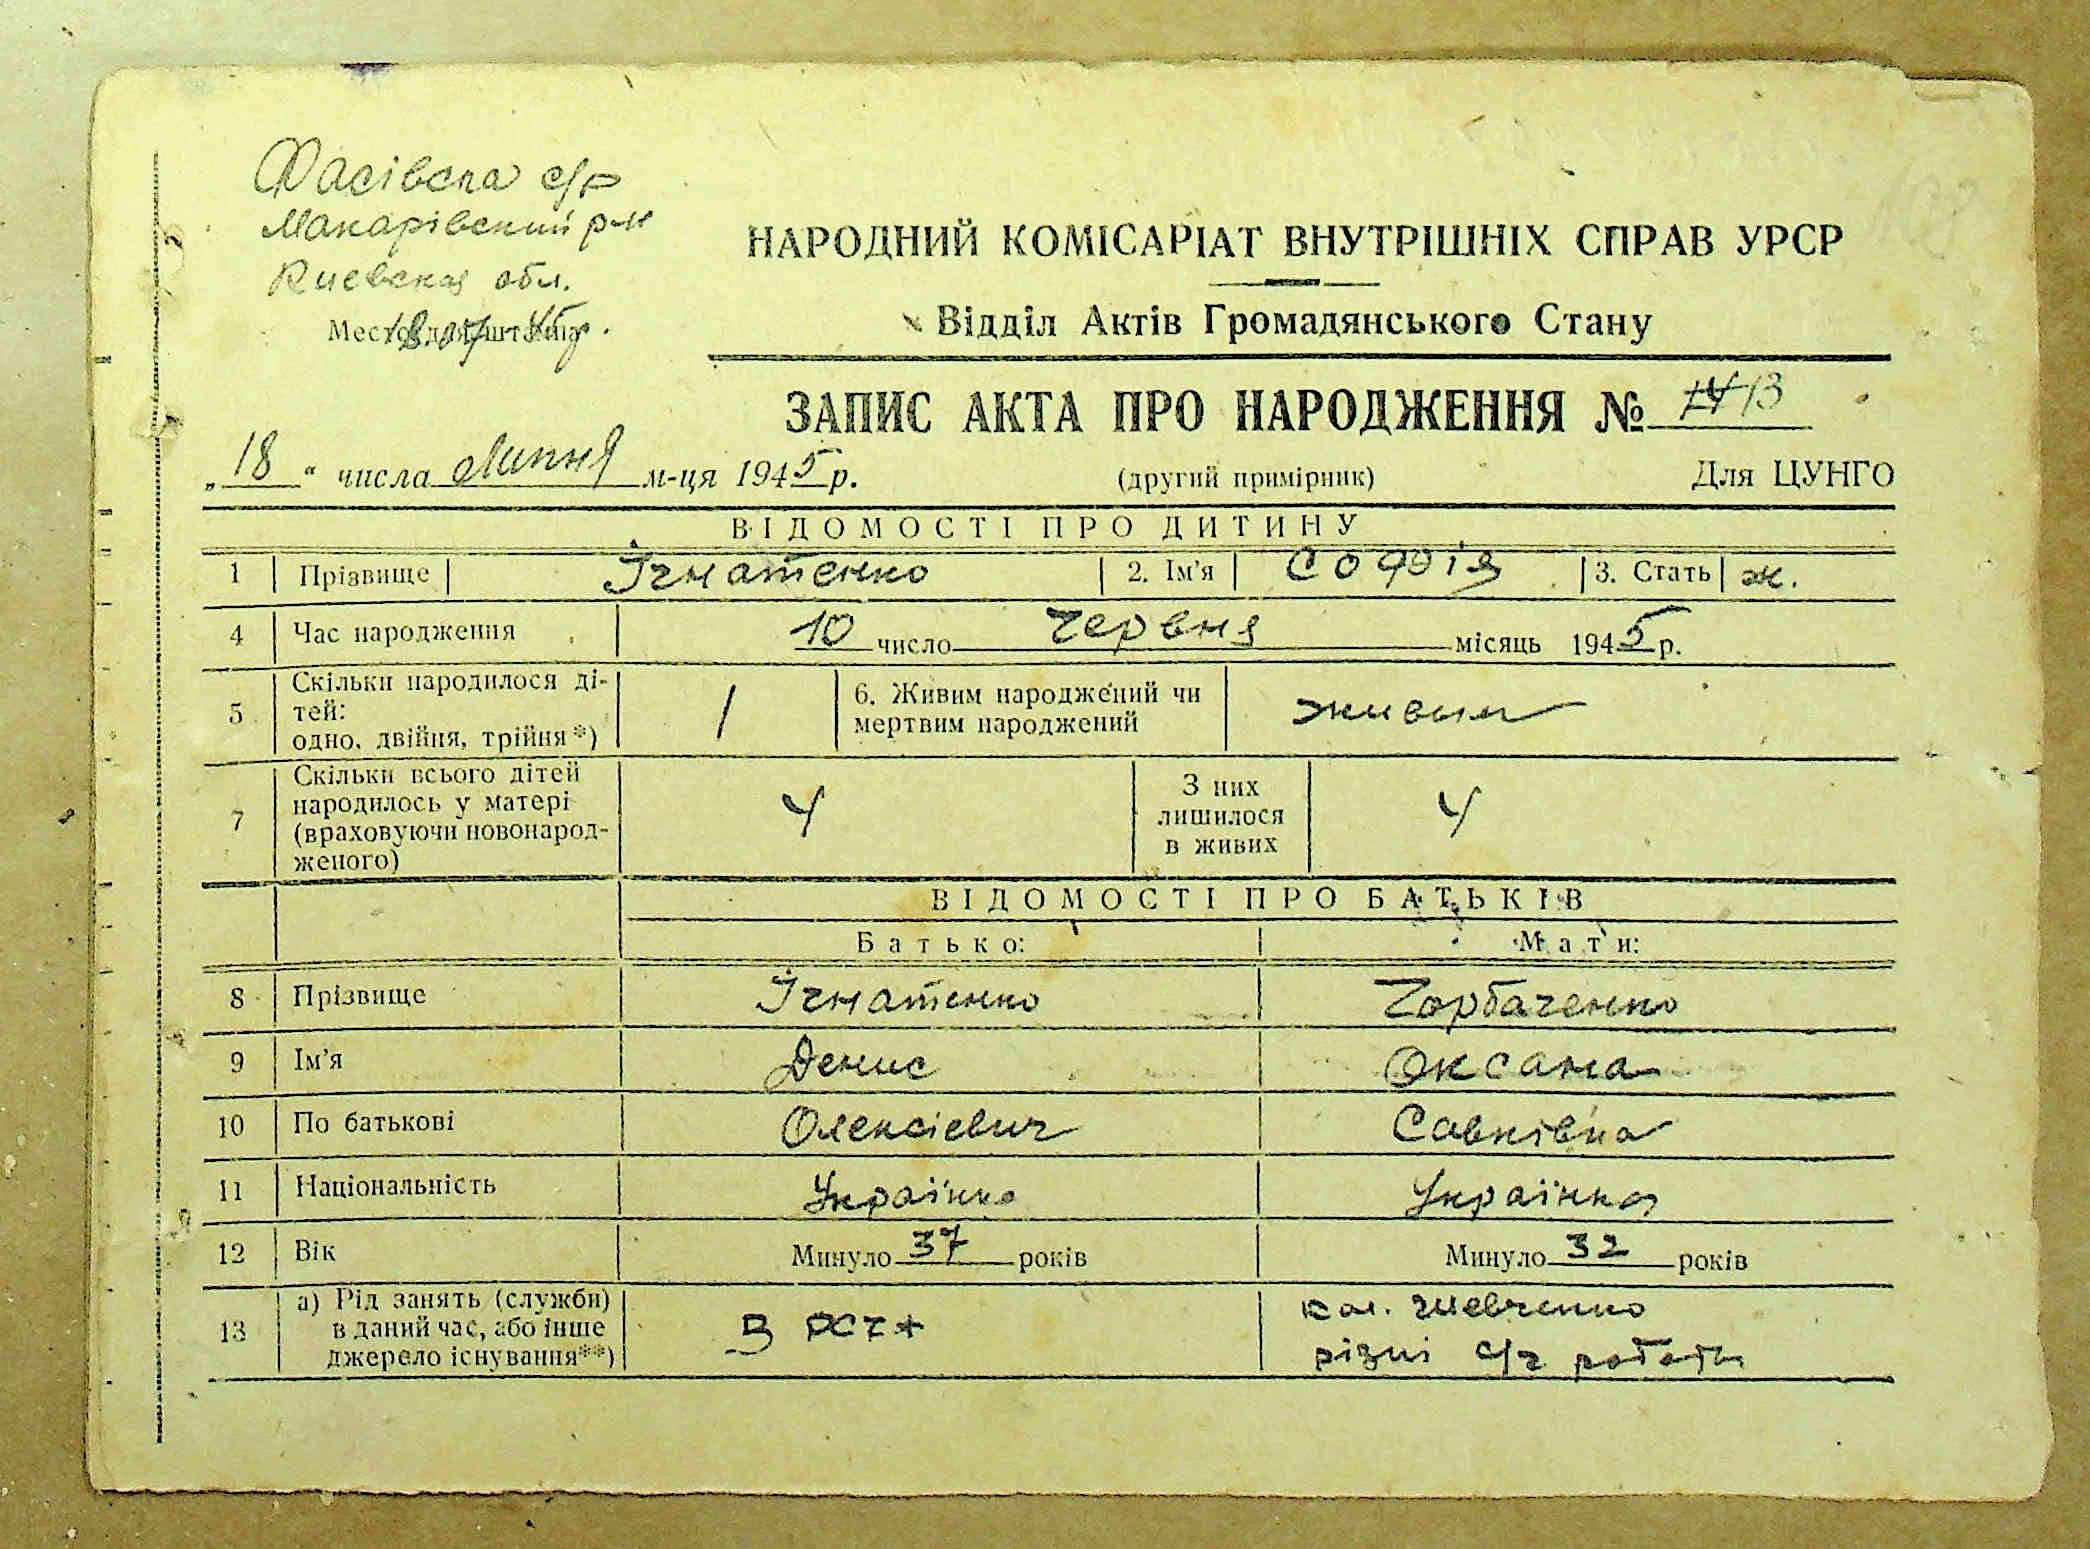 Фасівска с/р
Макарівский р-н
Киевская обл.
18.07.45р.
НАРОДНИЙ КОМІСАРІАТ ВНУТРІШНІХ СПРАВ УРСР
Відділ Актів Громадянського Стану
ЗАПИС АКТА ПРО НАРОДЖЕННЯ № 13
„18“ числа Липня м-ця 1945 р. (другий примірник) Для ЦУНГО
ВІДОМОСТІ ПРО ДИТИНУ
1 Прізвище Ігнатенко 2. Ім'я Софія 3. Стать ж.
4 Час народження 10 число Червня місяць 1945 р.
5 Скільки народилося ді-
тей:
одно, двійня, трійня*) 1 6. Живим народжений чи
мертвим народжений живым
7 Скільки всього дітей
народилось у матері
(враховуючи новонарод-
женого) 4 З них
лишилося
в живих 4
ВІДОМОСТІ ПРО БАТЬКІВ
Батько: Мати:
8 Прізвище Ігнатенко Горбаченко
9 Ім'я Денис Оксана
10 По батькові Олексієвич Савківна
11 Національність Українка
12 Вік Минуло 37 років Минуло 32 років
13 а) Рід занять (служби)
в даний час, або інше
джерело існування**) В РСЧА кол. Шевченко
різні с/г работы